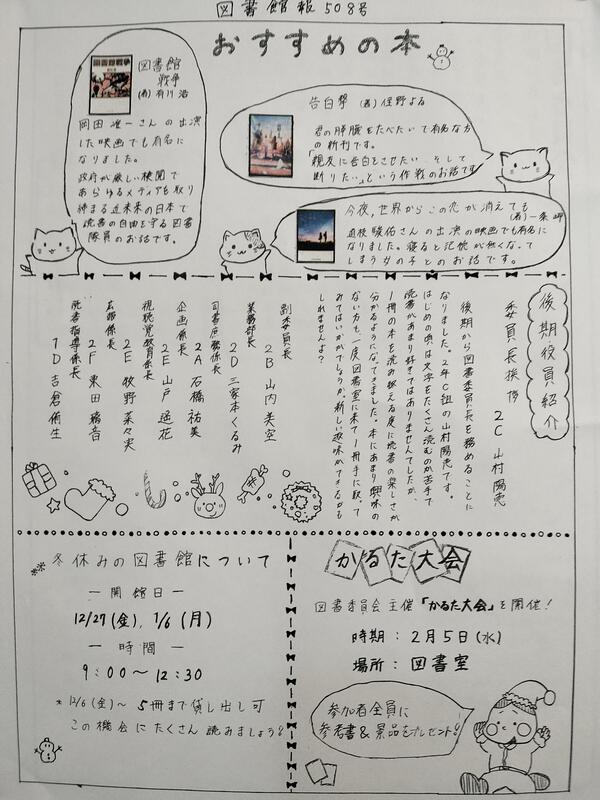 図書館報508号
おすすめの本
図書館
戦争
(著) 有川 浩
岡田准一さんの出演
した映画でも有名に
なりました。
政府が厳しい検閲で
あらゆるメディアを取り
締まる近未来の日本で
読書の自由を守る図書
隊員のお話です。
告白撃 (著) 住野よる
君の膵臓をたべたいで有名な方
の新刊です。
「親友に告白をさせたい、そして
断りたい」という作戦のお話です
今夜、世界からこの恋が消えても
(著) 一条 岬
道枝駿佑さんの出演の映画でも有名に
なりました。寝ると記憶が無くなって
しまう女の子とのお話です。
後期役員紹介
委員長挨拶
2C 山村陽
後期から図書委員長を務めることに
なりました。2年C組の山村陽です。
はじめの頃は文字をたくさん読むのが苦手で
読書があまり好きではありませんでしたが、
1冊の本を読み終える度に読書の楽しさが
分かるようになってきました。本にあまり興味の
ない方も、一度図書室に来て1冊手に取って
みてはいかがでしょうか。新しい趣味ができるかも
しれませんよ?
副委員長
2B 山内美空
業務部長
2D 三家本くるみ
司書庶務係長
2A 石橋祐美
企画係長
2E 山戸遥花
視聴覚教育係長
2E 牧野菜々実
広報係長
2F 東田瑞音
読書指導係長
1D 吉倉侑生
※※冬休みの図書館について
― 開館日 ―
12/27(金), 1/6(月)
― 時間 ―
9:00〜12:30
*12/6(金)〜 5冊まで貸し出し可
この機会にたくさん読みましょう!!
かるた大会
図書委員会主催「かるた大会」を開催!
時期:2月5日(水)
場所:図書室
参加者全員に
参考書&景品をプレゼント!!